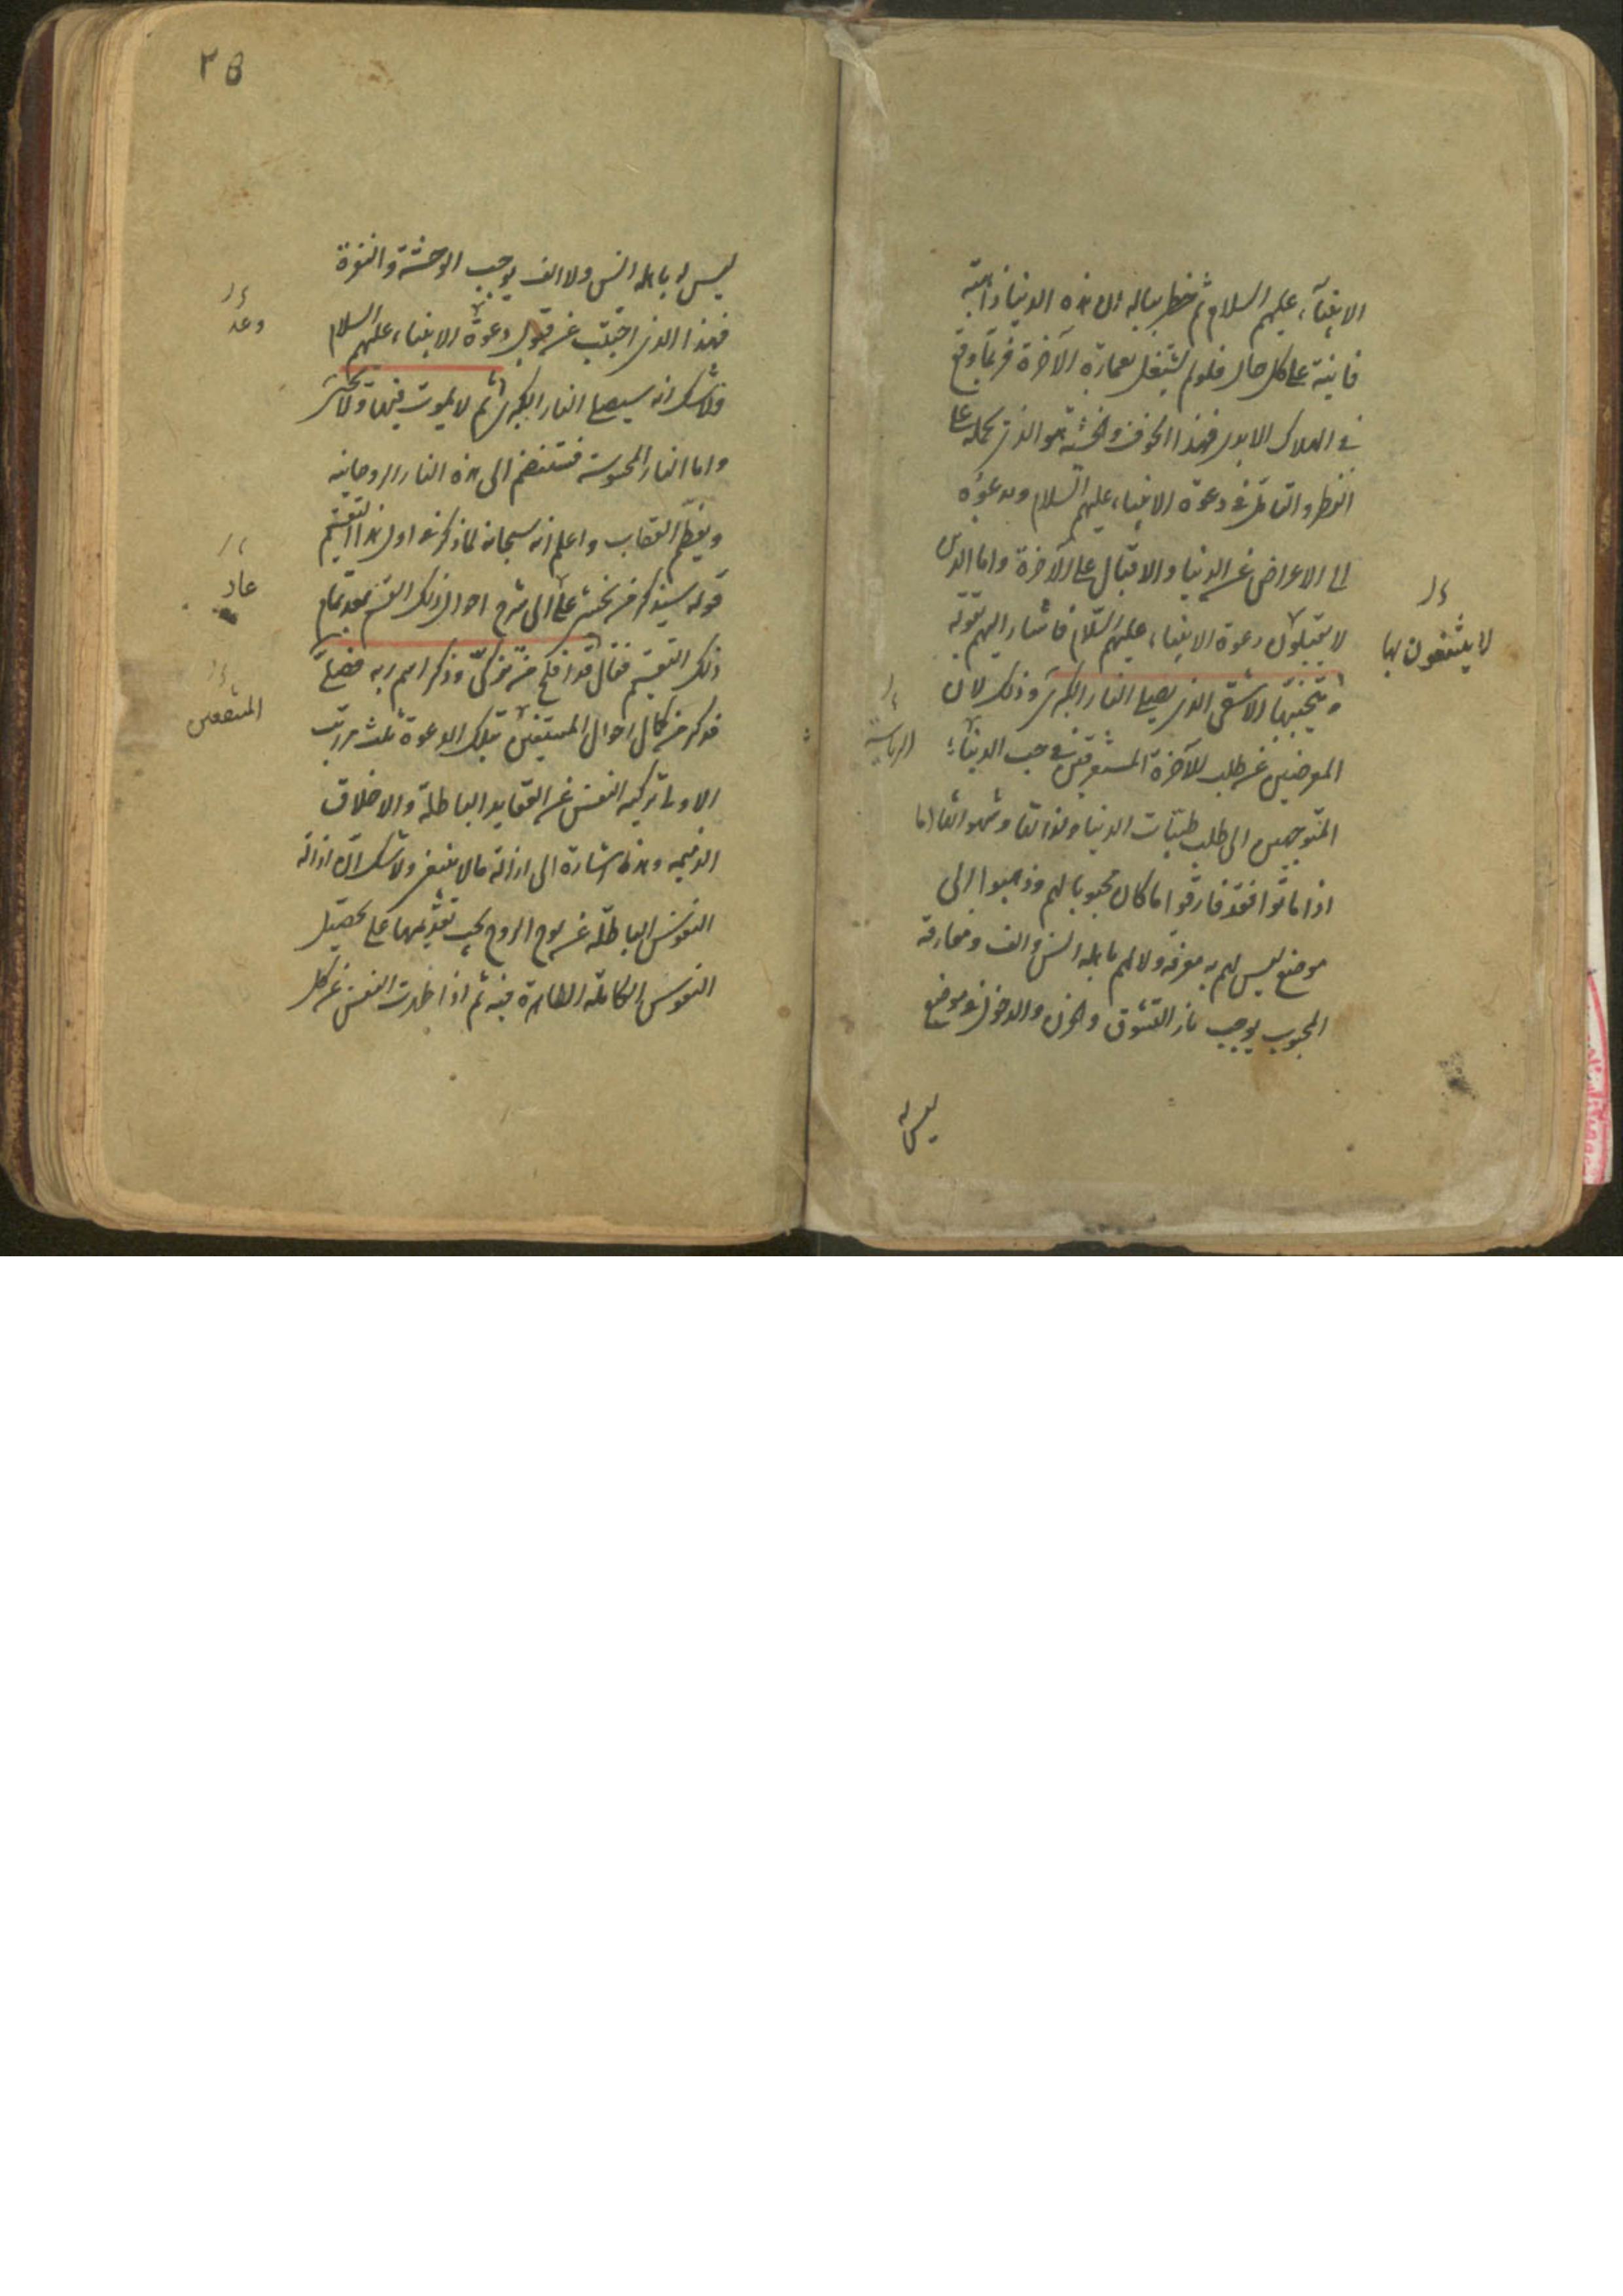 الانبياء عليهم السلام ثم خطر بباله ان هذه الدنيا ذاهبة
فانية على كل حال فلو لم يشتغل بعمارة الآخرة فربما وقع
في الهلاك الابدي فهذا الخوف والخشية هو الذي يحمله على
النظر والتامل في دعوة الانبياء عليهم السلام ويدعوه
الى الاعراض عن الدنيا والاقبال على الآخرة واما الذين
لا يقبلون دعوة الانبياء عليهم السلام فاشار اليهم بقوله
ويتجنبها الاشقى الذي يصلى النار الكبرى وذلك لان
المعرضين عن طلب الآخرة المستغرقين في حب الدنيا
المتوجهين الى طلب طيبات الدنيا ولذاتها وشهواتها
اذا ماتوا فقد فارقوا ما كان محبوبا لهم وذهبوا الى
موضع ليس لهم به معرفة ولا لهم باهله انس والف ومفارقة
المحبوب يوجب نار التشوق والحزن والدخول في موضع
ليس له
لا ينتفعون بها
الرياسة
٢٥
ليس له باهله انس ولا الف يوجب الوحشة والنفرة
فهذا الذي اجتنب عن قبول دعوة الانبياء عليهم السلام
ولا شك انه سيصلى النار الكبرى ثم لا يموت فيها ولا يحيى
واما النار المحسوسة فستنضم الى هذه النار الروحانية
ويعظم العقاب واعلم انه سبحانه لما ذكر في اول هذا التقسيم
قوله سيذكر من يخشى على الى شرح احوال ذلك القسم بعد تمام
ذلك التقسيم فقال قد افلح من تزكى وذكر اسم ربه فصلى
فذكر من كمال احوال المنتفعين بتلك الدعوة ثلث مراتب
الاولى تزكية النفس عن العقايد الباطلة والاخلاق
الذميمة وهذا اشارة الى ازالة ما لا ينبغي ولا شك ان ازالة
النقوش الباطلة عن لوح الروح يجب تقديمها على تحصيل
النقوش الكاملة الطاهرة فيه ثم اذا طهرت النفس عن كل
وعد
عاد
المنتفعين